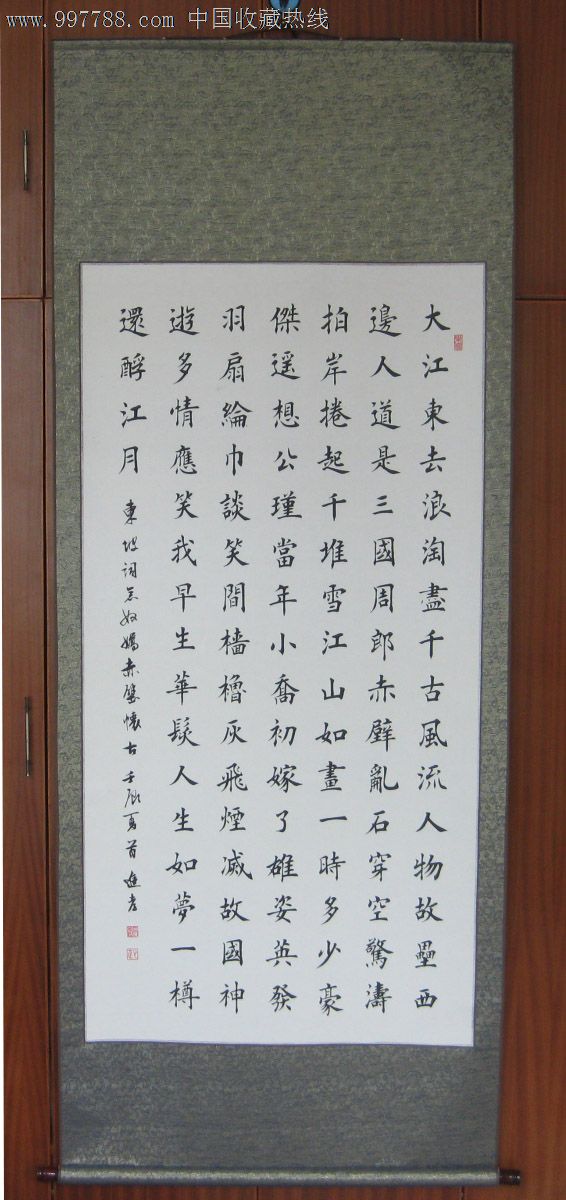 www.997788.com 中国收藏热线
大江東去浪淘盡千古風流人物故壘西
邊人道是三國周郎赤壁亂石穿空驚濤
拍岸捲起千堆雪江山如畫一時多少豪
傑遥想公瑾當年小喬初嫁了雄姿英發
羽扇綸巾談笑間檣櫓灰飛煙滅故國神
遊多情應笑我早生華髮人生如夢一樽
還酹江月
東坡詞念奴嬌赤壁懷古壬辰夏首進